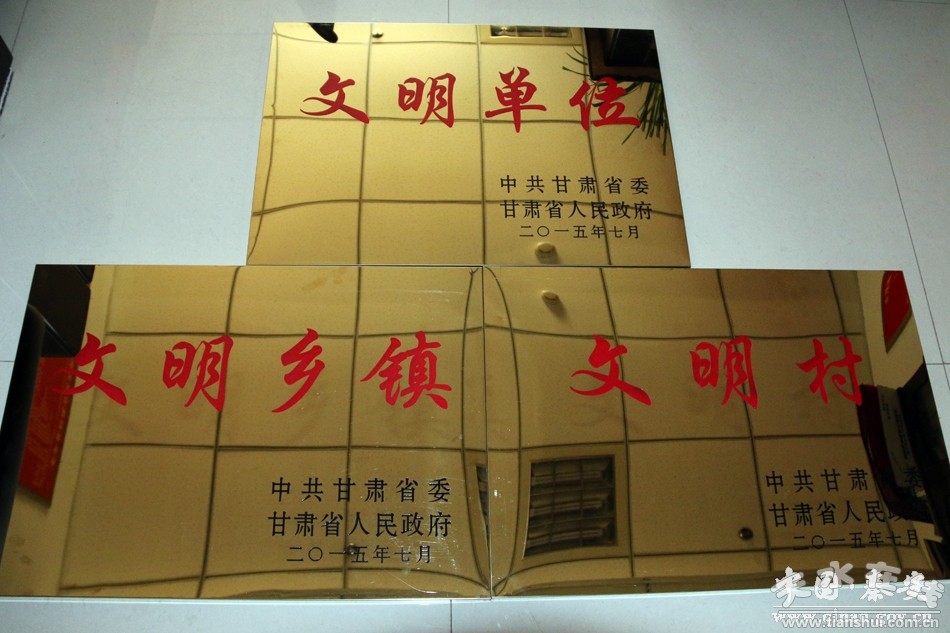 文明单位
中共甘肃省委
甘肃省人民政府
二〇一五年七月
文明乡镇
中共甘肃省委
甘肃省人民政府
二〇一五年七月
文明村
中共甘肃省委
甘肃省人民政府
二〇一五年七月
www.tianshui.com.cn